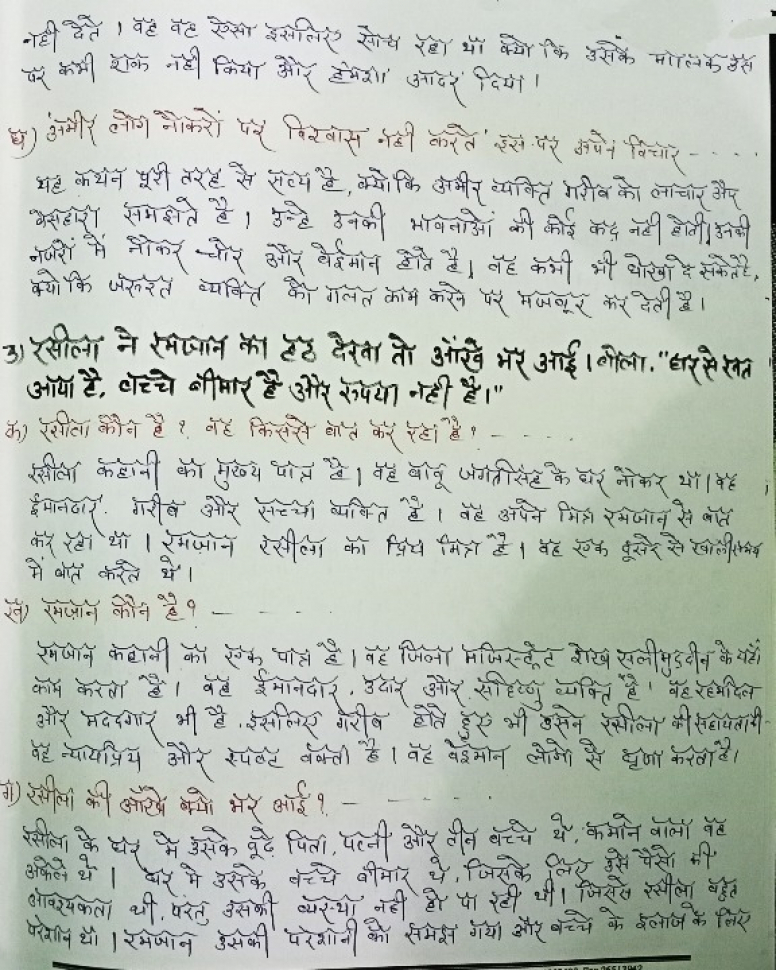 नही देते । वह वह ऐसा इसलिए सोच रहा था क्यो कि उसके मालिक उस
पर कभी शक नही किया और हमेशा आदर दिया ।
घ) अमीर लोग नौकरों पर विश्वास नही करते इस पर अपने विचार - - - -
यह कथन पूरी तरह से सत्य है, क्योकि अमीर व्यक्ति गरीब को लाचार और
बेसहारा समझते है । उन्हे उनकी भावनाओं की कोई कद्र नही होती, उनकी
नजरों में नौकर चोर और बेईमान होते है । वह कभी भी धोखा दे सकते है,
क्यो कि जरूरत व्यक्ति को गलत काम करने पर मजबूर कर देती है ।
3) रसीला ने रमजान का हठ देखा तो आँखे भर आई । बोला, "घर से खत
आया है, बच्चे बीमार है और रूपया नही है ।"
क) रसीला कौन है ? वह किससे बात कर रहा है ? - - - -
रसीला कहानी का मुख्य पात्र है । वह बाबू जगतसिंह के घर नौकर था । वह
ईमानदार, गरीब और सच्चा व्यक्ति है । वह अपने मित्र रमजान से बात
कर रहा था । रमज़ान रसीला का प्रिय मित्र है । वह एक दूसरे से खाली समय
में बात करते थे ।
ख) रमजान कौन है ? - - - -
रमजान कहानी का एक पात्र है । वह जिला मजिस्ट्रेट शेख सलीमुद्दीन के यहाँ
काम करता है । वह ईमानदार, उदार और सहिष्णु व्यक्ति है । वह रहमदिल
और मददगार भी है, इसलिए गरीब होते हुए भी उसने रसीला की सहायता की
वह न्यायप्रिय और स्पष्ट वक्ता है । वह बेईमान लोगो से घृणा करता है ।
ग) रसीला की आँखे क्यो भर आई ? - - - -
रसीला के घर मे उसके बूढे पिता, पत्नी और तीन बच्चे थे, कमाने वाला वह
अकेले थे । घर मे उसके बच्चे बीमार थे, जिसके लिए उसे पैसो की
आवश्यकता थी, परंतु उसकी व्यस्था नही हो पा रही थी । जिससे रसीला बहुत
परेशान था । रमजान उसकी परेशानी को समझ गया और बच्चे के इलाज के लिए